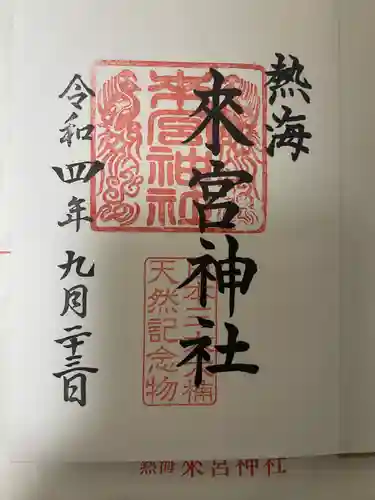 熱海
來宮神社
令和四年九月二十三日
來宮神社
日本三大樟
天然記念物
熱海 來宮神社